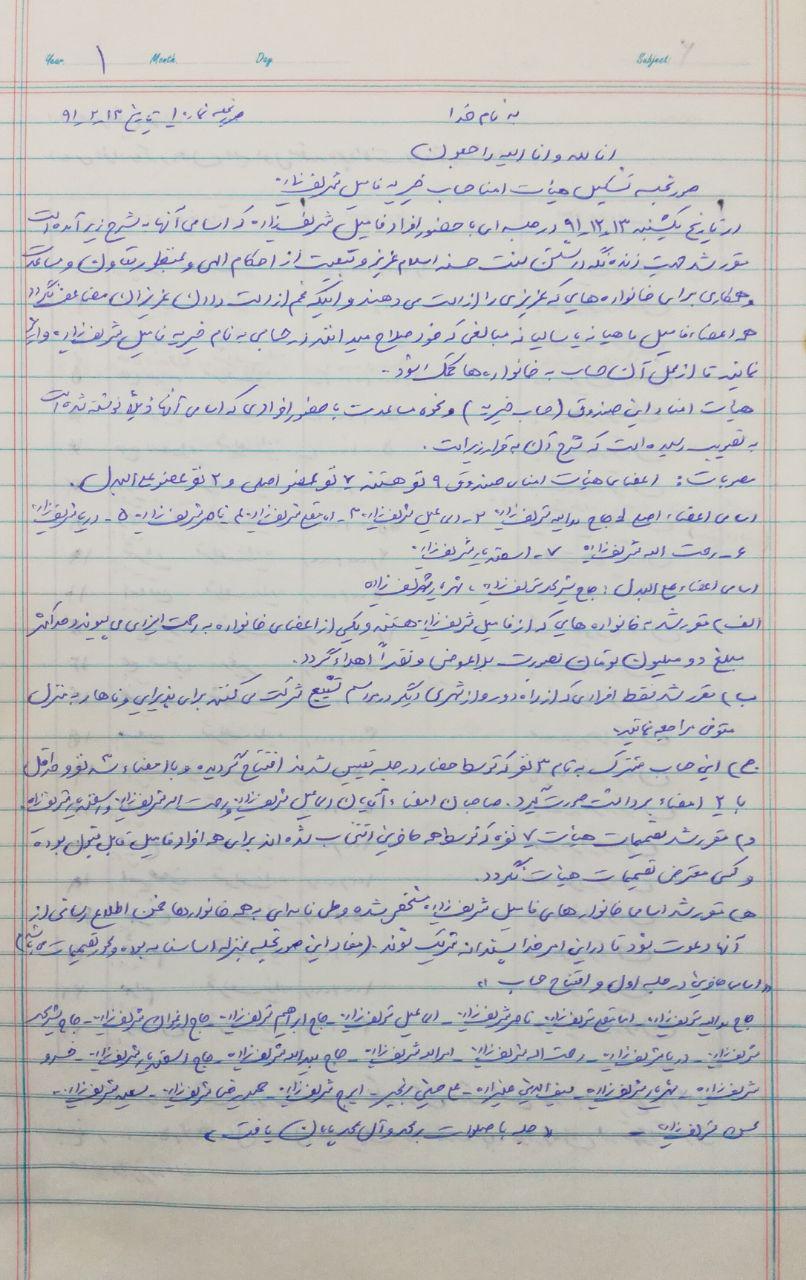 Year. ۱ Month. Day. Subject.
به نام خدا صورتجلسه نماره ۱ تاریخ ۱۳-۲-۹۱
انا لله و انا الیه راجعون
صورتجلسه تشکیل هیأت امنا حساب خیریه فامیل شریف‌زاده
در تاریخ یکشنبه ۱۳-۱۲-۹۱ در جلسه ای با حضور افراد فامیل شریف‌زاده که اسامی آنها به شرح زیر آمده است
مقرر شد جهت زنده نگه داشتن سنت حسنه اسلام عزیز و تبعیت از احکام الهی و بمنظور تعاون و مساعدت
و همکاری برای خانواده هایی که عزیزی را از دست می دهند و اینکه غم از دست دادن عزیزان مضاعف نگردد
همه اعضاء فامیل ماهیانه یا سالیانه مبالغی که خود صلاح میدانند در حسابی به نام خیریه فامیل شریف‌زاده واریز
نمایند تا از محل آن حساب به خانواده ها کمک شود -
هیأت امناء این صندوق (حساب خیریه) و نحوه مساعدت با حضور افرادی که اسامی آنها ذیلاً نوشته شده است
به تصویب رسیده است که شرح آن به قرار زیر است.
مصوبات: اعضای هیأت امنای صندوق ۹ نفر هستند ۷ نفر عضو اصلی و ۲ نفر عضو علی البدل.
اسامی اعضاء اصلی ۱- حاج یداله شریف‌زاده ۲- اسماعیل شریف‌زاده ۳- امامقلی شریف‌زاده ۴- ناصر شریف‌زاده ۵- دریا شریف‌زاده
۶- رحمت اله شریف‌زاده ۷- اسفندیار شریف‌زاده
اسامی اعضاء علی البدل: حاج شیرمحمد شریف‌زاده، شهریار شریف‌زاده
الف) مقرر شد به خانواده هایی که از فامیل شریف‌زاده هستند و یکی از اعضای خانواده به رحمت ایزدی می پیوندد حداکثر
مبلغ دو میلیون تومان بصورت بلاعوض و نقداً اهداء گردد.
ب) مقرر شد فقط افرادی که از راه دور و از شهری دیگر در مراسم تشییع شرکت می کنند برای پذیرایی و ناهار به منزل
متوفی مراجعه نمایند.
ج) این حساب مشترک به نام ۳ نفر که توسط حضار در جلسه تعیین شدند افتتاح گردیده و با امضاء سه نفر و حداقل
با ۲ امضاء برداشت صورت گیرد. صاحبان امضاء آقایان اسماعیل شریف‌زاده و رحمت اله شریف‌زاده و اسفندیار شریف‌زاده
د) مقرر شد تصمیمات هیأت ۷ نفره که توسط همه حاضرین انتخاب شده اند برای همه افراد فامیل قابل قبول بوده
و کسی معترض تصمیمات هیأت نگردد.
ه) مقرر شد اسامی خانوارهای فامیل شریف‌زاده مشخص شده و طی نامه ای به همه خانوارها ضمن اطلاع رسانی از
آنها دعوت شود تا در این امر خداپسندانه شریک شوند. (مفاد این صورتجلسه بمنزله اساسنامه بوده و محور تصمیمات می باشد)
«اسامی حاضرین در جلسه اول و افتتاح حساب»
حاج یداله شریف‌زاده - امامقلی شریف‌زاده - ناصر شریف‌زاده - اسماعیل شریف‌زاده - حاج ابراهیم شریف‌زاده - حاج شریف‌زاده - حاج شیرمحمد
شریف‌زاده - دریا شریف‌زاده - رحمت اله شریف‌زاده - شریف‌زاده - حاج شریف‌زاده - حاج اسفندیار شریف‌زاده - خسرو
شریف‌زاده - شهریار شریف‌زاده - سیف الدین - علی حسین - ایرج شریف‌زاده - حمیدرضا شریف‌زاده - سعید شریف‌زاده -
محسن شریف‌زاده - «جلسه با صلوات بر محمد و آل محمد پایان یافت»